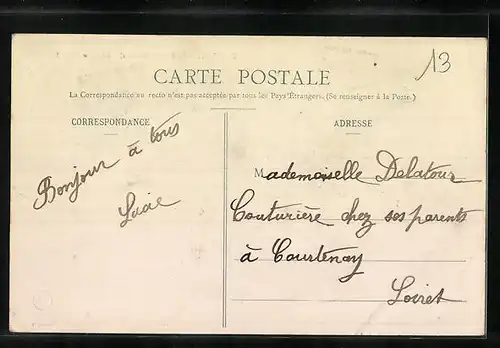 13
CARTE POSTALE
La Correspondance au recto n'est pas acceptée par tous les Pays Étrangers. (Se renseigner à la Poste.)
CORRESPONDANCE
Bonjour à tous
Lucie
ADRESSE
Mademoiselle Delatour
Couturière chez ses parents
à Courtenay
Loiret